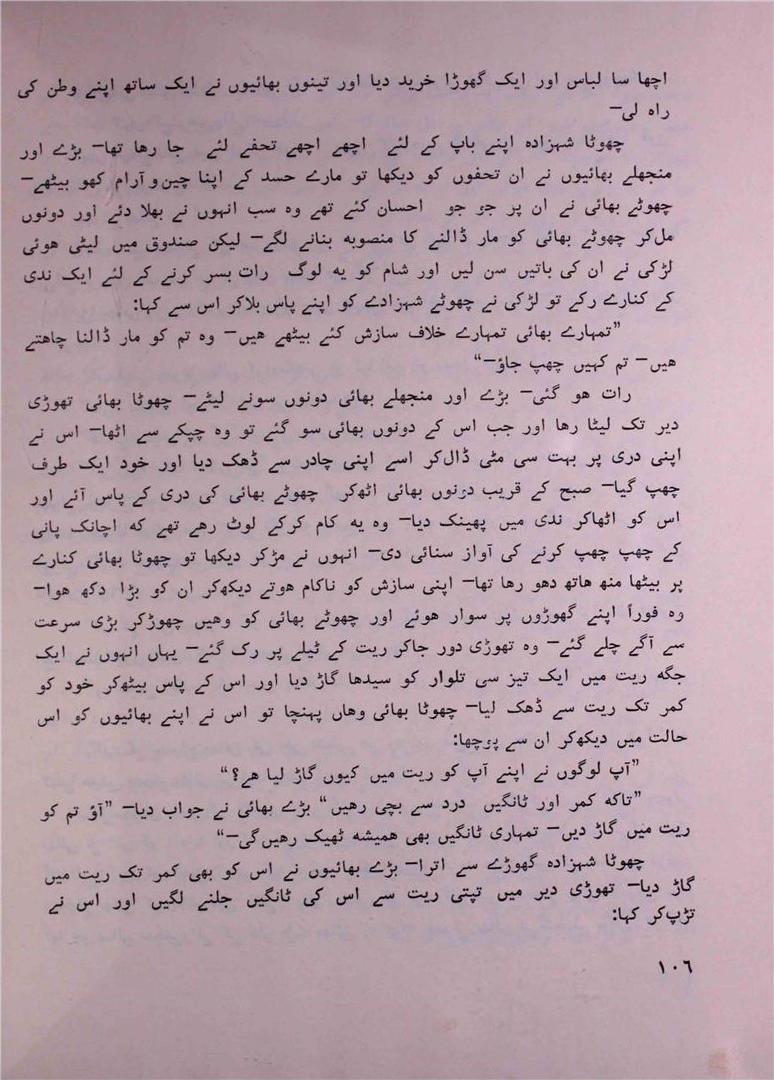 اچھا سا لباس اور ایک گھوڑا خرید دیا اور تینوں بھائیوں نے ایک ساتھ اپنے وطن کی
راہ لی—
چھوٹا شہزادہ اپنے باپ کے لئے اچھے اچھے تحفے لئے جا رہا تھا— بڑے اور
منجھلے بھائیوں نے ان تحفوں کو دیکھا تو مارے حسد کے اپنا چین و آرام کھو بیٹھے—
چھوٹے بھائی نے ان پر جو جو احسان کئے تھے وہ سب انہوں نے بھلا دئے اور دونوں
مل‌کر چھوٹے بھائی کو مار ڈالنے کا منصوبہ بنانے لگے— لیکن صندوق میں لیٹی ہوئی
لڑکی نے ان کی باتیں سن لیں اور شام کو یہ لوگ رات بسر کرنے کے لئے ایک ندی
کے کنارے رکے تو لڑکی نے چھوٹے شہزادے کو اپنے پاس بلاکر اس سے کہا:
”تمہارے بھائی تمہارے خلاف سازش کئے بیٹھے ہیں— وہ تم کو مار ڈالنا چاہتے
ہیں— تم کہیں چھپ جاؤ—“
رات ہو گئی— بڑے اور منجھلے بھائی دونوں سونے لیٹے— چھوٹا بھائی تھوڑی
دیر تک لیٹا رہا اور جب اس کے دونوں بھائی سو گئے تو وہ چپکے سے اٹھا— اس نے
اپنی دری پر بہت سی مٹی ڈال‌کر اسے اپنی چادر سے ڈھک دیا اور خود ایک طرف
چھپ گیا— صبح کے قریب دونوں بھائی اٹھ‌کر چھوٹے بھائی کی دری کے پاس آئے اور
اس کو اٹھاکر ندی میں پھینک دیا— وہ یہ کام کرکے لوٹ رہے تھے کہ اچانک پانی
کے چھپ چھپ کرنے کی آواز سنائی دی— انہوں نے مڑکر دیکھا تو چھوٹا بھائی کنارے
پر بیٹھا منھ ہاتھ دھو رہا تھا— اپنی سازش کو ناکام ہوتے دیکھ‌کر ان کو بڑا دکھ ہوا—
وہ فوراً اپنے گھوڑوں پر سوار ہوئے اور چھوٹے بھائی کو وہیں چھوڑکر بڑی سرعت
سے آگے چلے گئے— وہ تھوڑی دور جاکر ریت کے ٹیلے پر رک گئے— یہاں انہوں نے ایک
جگہ ریت میں ایک تیز سی تلوار کو سیدھا گاڑ دیا اور اس کے پاس بیٹھ‌کر خود کو
کمر تک ریت سے ڈھک لیا— چھوٹا بھائی وہاں پہنچا تو اس نے اپنے بھائیوں کو اس
حالت میں دیکھ‌کر ان سے پوچھا:
”آپ لوگوں نے اپنے آپ کو ریت میں کیوں گاڑ لیا ہے؟“
”تاکہ کمر اور ٹانگیں درد سے بچی رہیں“ بڑے بھائی نے جواب دیا— ”آؤ تم کو
ریت میں گاڑ دیں— تمہاری ٹانگیں بھی ہمیشہ ٹھیک رہیں‌گی—“
چھوٹا شہزادہ گھوڑے سے اترا— بڑے بھائیوں نے اس کو بھی کمر تک ریت میں
گاڑ دیا— تھوڑی دیر میں تپتی ریت سے اس کی ٹانگیں جلنے لگیں اور اس نے
تڑپ‌کر کہا:
١٠٦